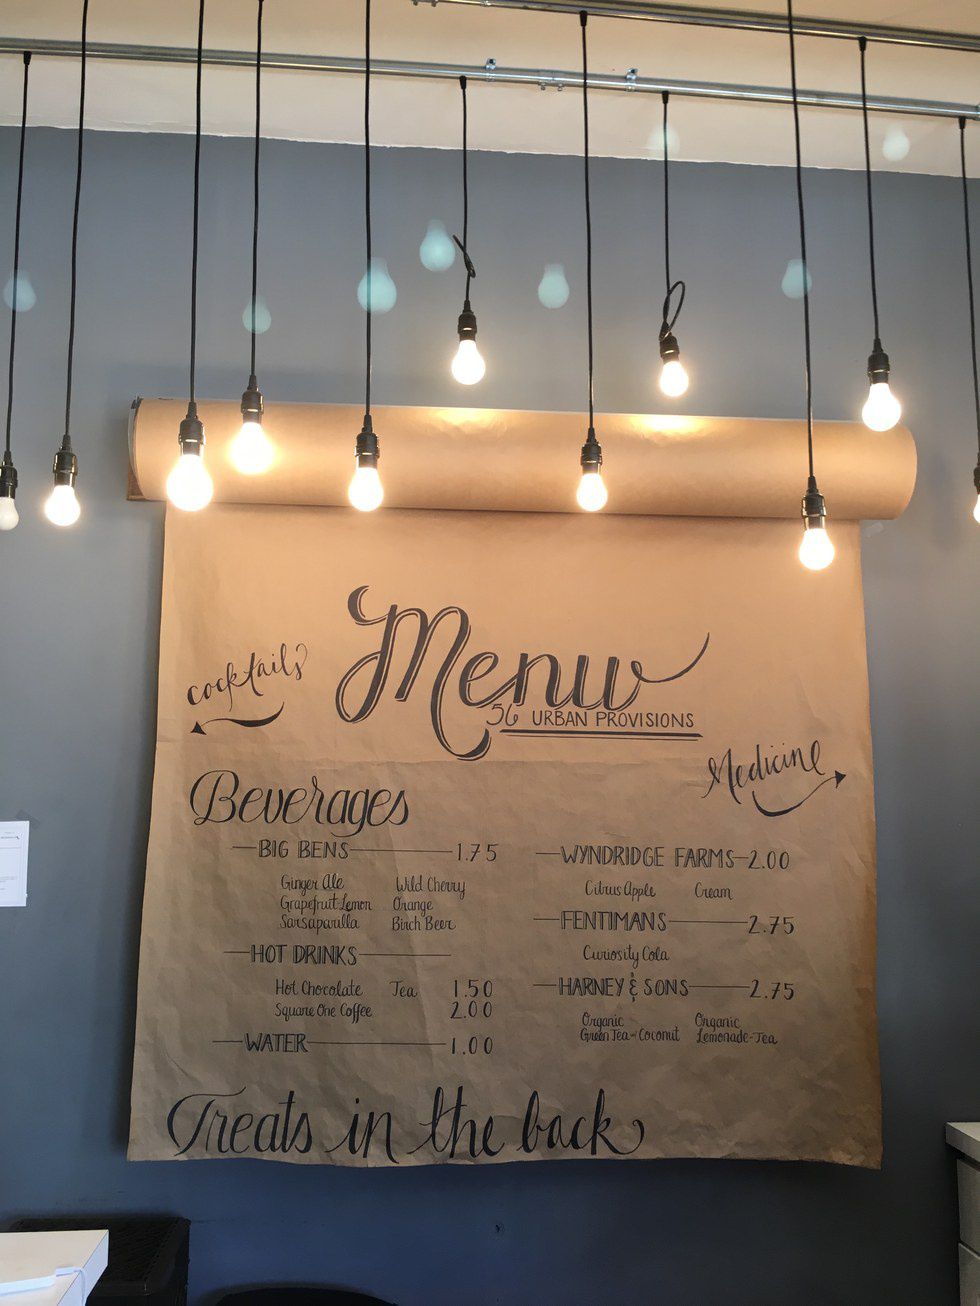 Menu
cocktails
56 URBAN PROVISIONS
Medicine
Beverages
BIG BENS 1.75
Ginger Ale Wild Cherry
Grapefruit Lemon Orange
Sarsaparilla Birch Beer
HOT DRINKS
Hot Chocolate Tea 1.50
Square One Coffee 2.00
WATER 1.00
WYNDRIDGE FARMS 2.00
Citrus Apple Cream
FENTIMANS 2.75
Curiosity Cola
HARNEY & SONS 2.75
Organic Organic
Green Tea + Coconut Lemonade-Tea
Treats in the back